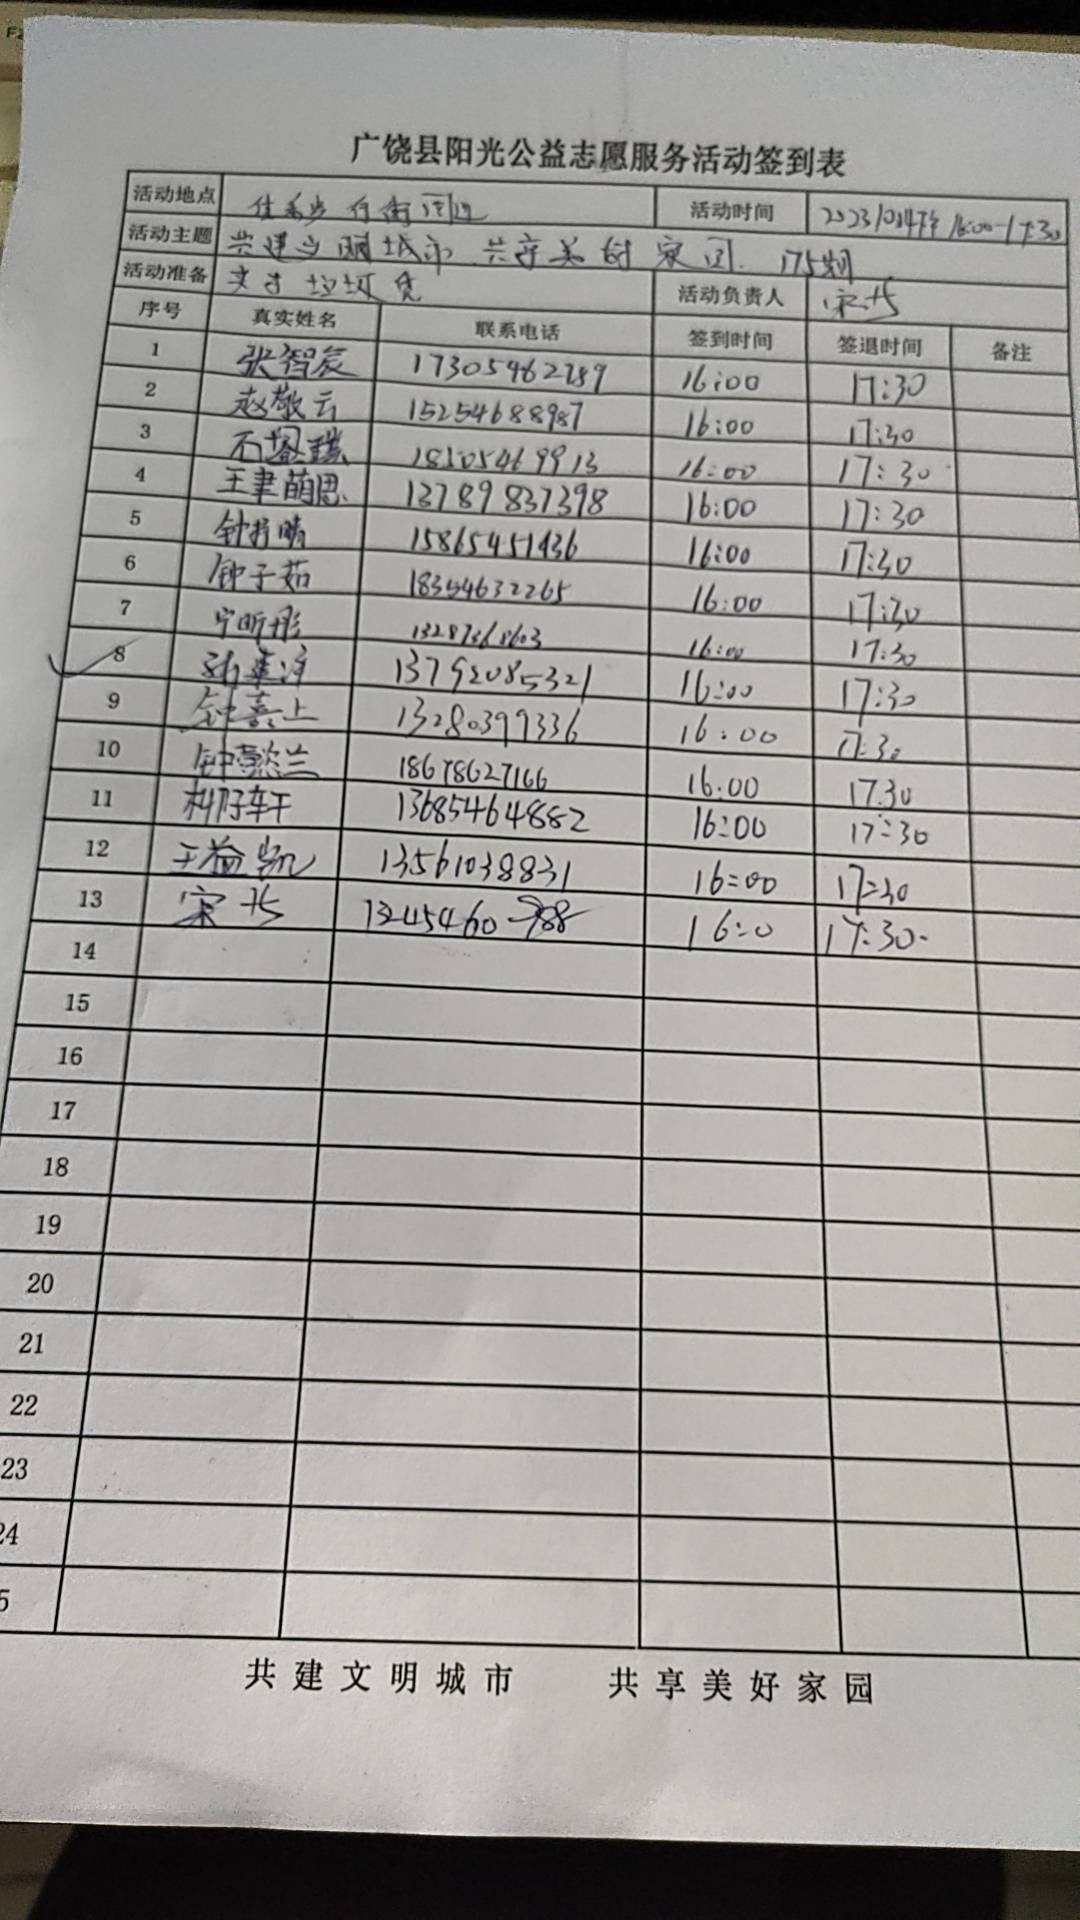 广饶县阳光公益志愿服务活动签到表
活动地点 活动时间 16:00-17:30
活动主题 共建文明城市 共享美好家园 175期
活动准备 夹子 垃圾袋 活动负责人
序号 真实姓名 联系电话 签到时间 签退时间 备注
1 张智宸 17305462789 16:00 17:30
2 赵敬云 15254688987 16:00 17:30
3 16:00 17:30
4 王聿萌思 13789837398 16:00 17:30
5 15865451436 16:00 17:30
6 钟子茹 18354632265 16:00 17:30
7 宁昕彤 16:00 17:30
8 13792085321 16:00 17:30
9 13280399336 16:00 17:30
10 钟懿兰 18678627166 16:00 17:30
11 13685464882 16:00 17:30
12 13561038831 16:00 17:30
13 16:0 17:30
14
15
16
17
18
19
20
21
22
23
24
5
共建文明城市 共享美好家园